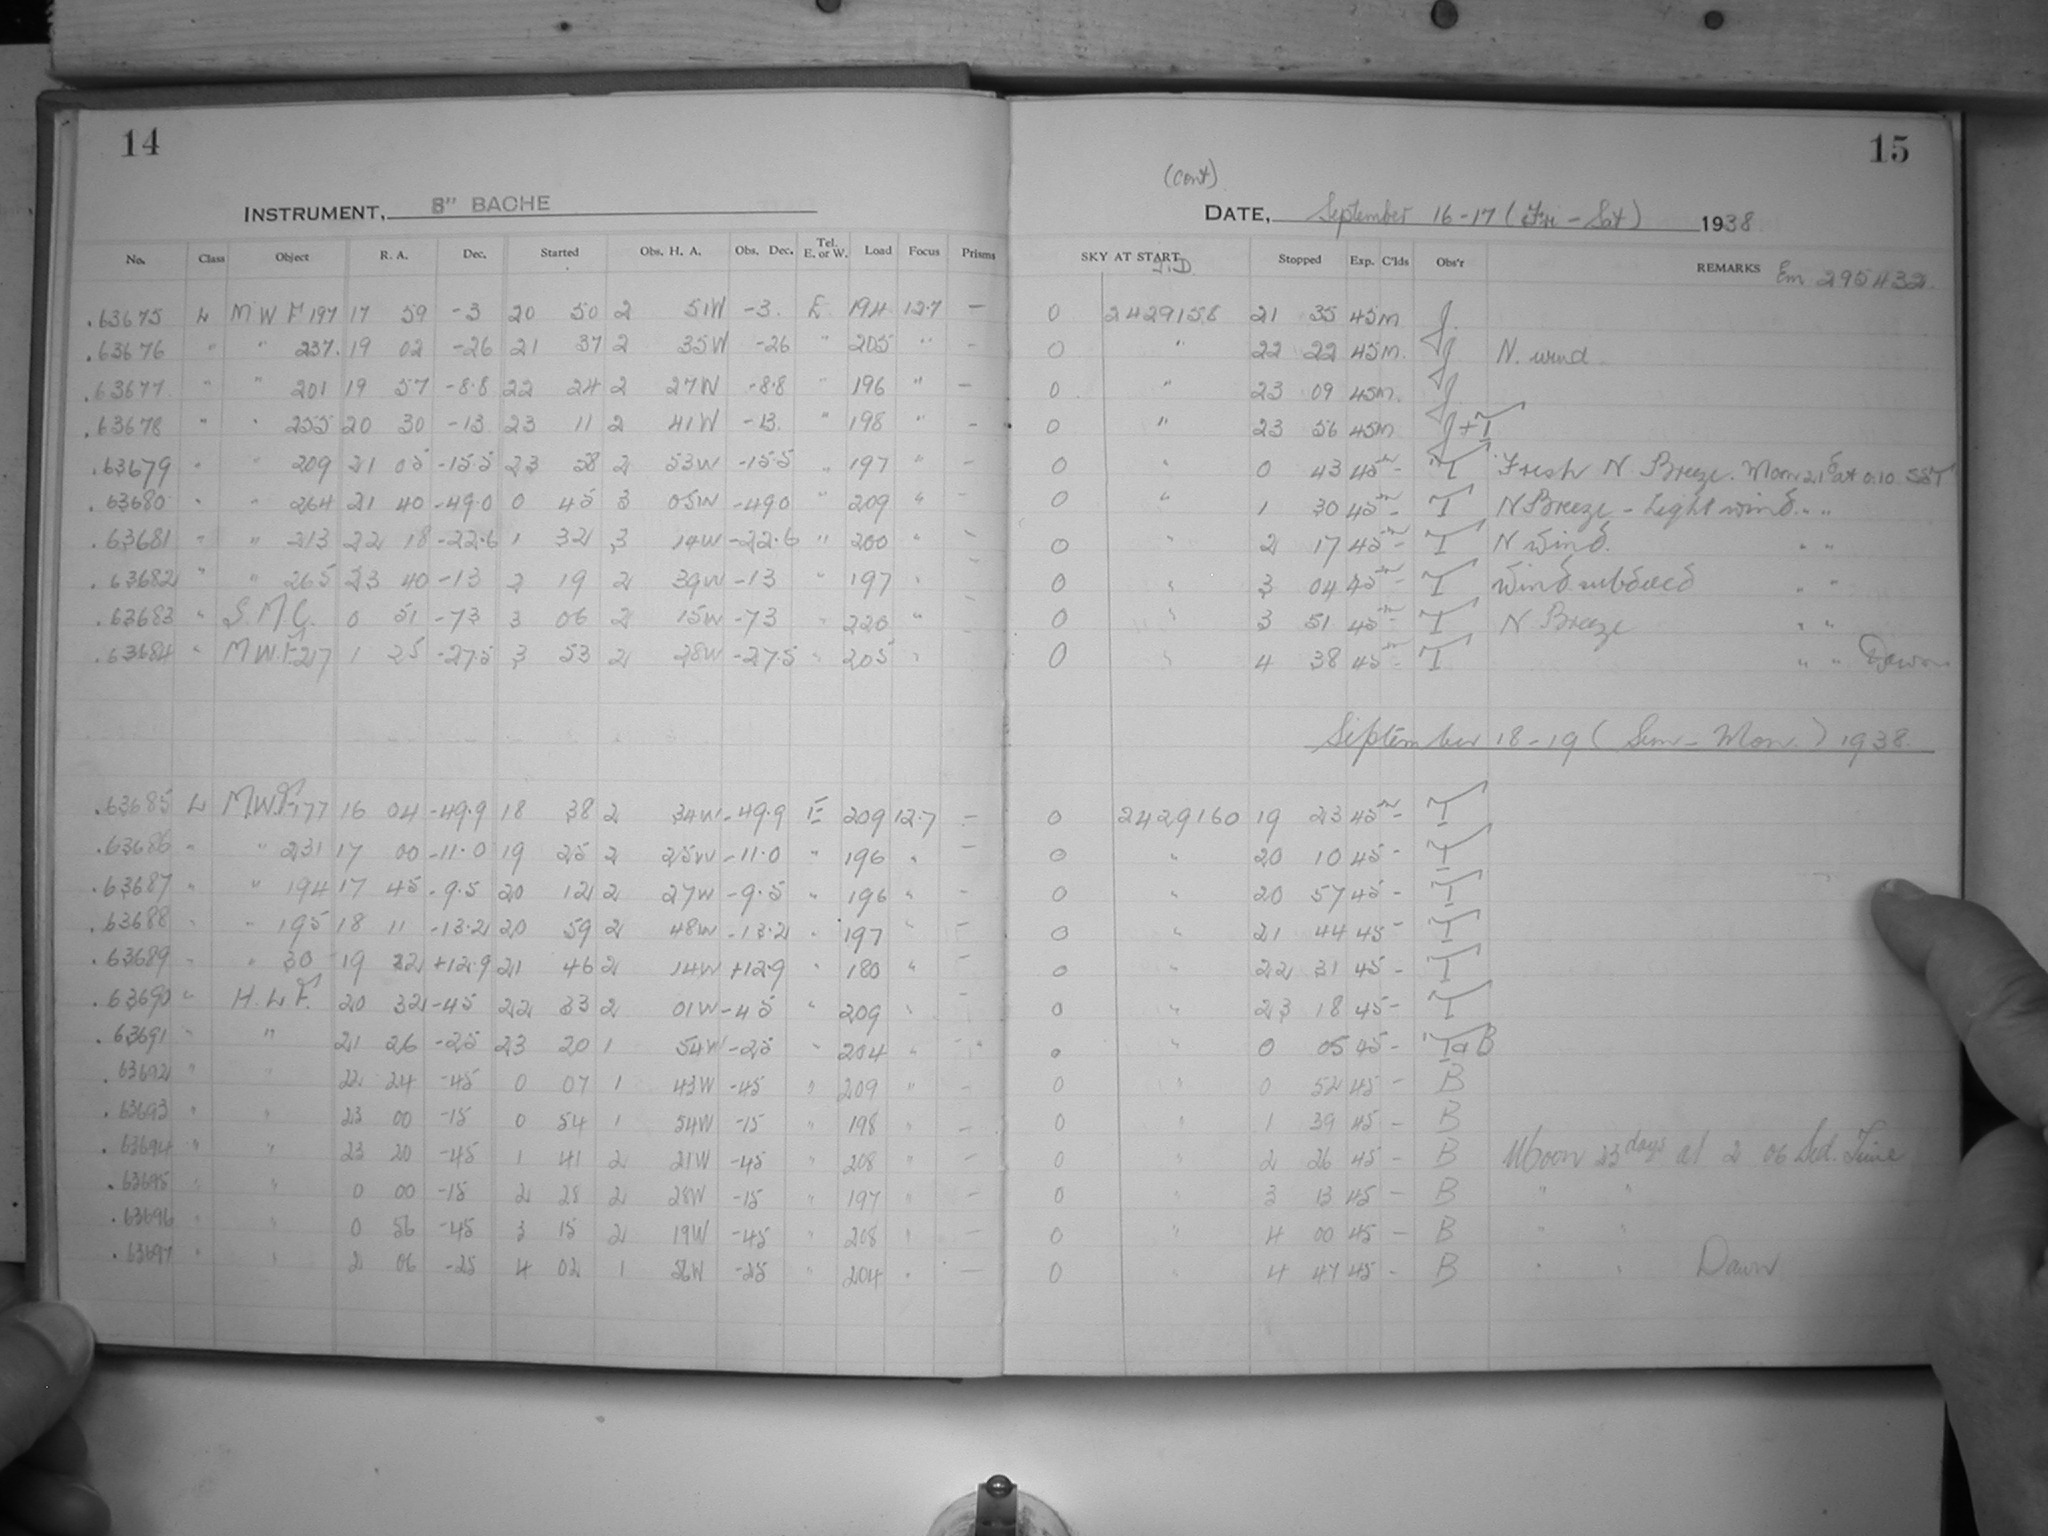 14
15
(Cont)
INSTRUMENT, 8" BACHE
DATE, September 16-17 (Fri - Sat) 1938
No. Class Object R. A. Dec. Started Obs. H. A. Obs. Dec. Tel. E. or W. Load Focus Prisms SKY AT START J.D. Stopped Exp. C'lds Obs'r REMARKS Em 295432
.63675 L MWF 197 17 59 -3 20 50 2 51W -3 E 194 12.7 — 0 2429158 21 35 45m J.
.63676 " " 237 19 02 -26 21 37 2 35W -26 " 205 " — 0 " 22 22 45m. J N. wind
.63677 " " 201 19 57 -8.8 22 24 2 27W -8.8 " 196 " — 0 " 23 09 45m. J
.63678 " " 255 20 30 -13 23 11 2 41W -13 " 198 " — 0 " 23 56 45m J+T
.63679 " " 209 21 05 -15.5 23 58 2 53W -15.5 " 197 " — 0 " 0 43 45m - T Fresh N Breeze. Moon 21d at 0.10 SST
.63680 " " 264 21 40 -49.0 0 45 3 05W -49.0 " 209 " — 0 " 1 30 45m - T N Breeze - Light wind " "
.63681 " " 213 22 18 -22.6 1 32 3 14W -22.6 " 200 " — 0 " 2 17 45m - T N Wind. " "
.63682 " " 265 23 40 -13 2 19 2 39W -13 " 197 " — 0 " 3 04 45m - T Wind subdued " "
.63683 " S.M.C. 0 51 -73 3 06 2 15W -73 " 220 " — 0 " 3 51 45m - T N Breeze " "
.63684 " M.W.F 217 1 25 -27.5 3 53 2 28W -27.5 " 205 " — 0 " 4 38 45m - T " " Dawn
September 18-19 (Sun - Mon.) 1938
.63685 L M.W.F 177 16 04 -49.9 18 38 2 34W -49.9 E 209 12.7 — 0 2429160 19 23 45m - T
.63686 " " 231 17 00 -11.0 19 25 2 25W -11.0 " 196 " — 0 " 20 10 45 - T
.63687 " " 194 17 45 -9.5 20 12 2 27W -9.5 " 196 " — 0 " 20 57 45 - T
.63688 " " 195 18 11 -13.2 20 59 2 48W -13.2 " 197 " — 0 " 21 44 45 - T
.63689 " " 30 19 32 +12.9 21 46 2 14W +12.9 " 180 " — 0 " 22 31 45 - T
.63690 " H.L.F. 20 32 -45 22 33 2 01W -45 " 209 " — 0 " 23 18 45 - T
.63691 " " 21 26 -25 23 20 1 54W -25 " 204 " — 0 " 0 05 45 - T&B
.63692 " " 22 24 -45 0 07 1 43W -45 " 209 " — 0 " 0 52 45 - B
.63693 " " 23 00 -15 0 54 1 54W -15 " 198 " — 0 " 1 39 45 - B
.63694 " " 23 20 -45 1 41 2 21W -45 " 208 " — 0 " 2 26 45 - B Moon 23 days at 2 06 Sid. Time
.63695 " " 0 00 -15 2 28 2 28W -15 " 197 " — 0 " 3 13 45 - B " "
.63696 " " 0 56 -45 3 15 2 19W -45 " 208 " — 0 " 4 00 45 - B " "
.63697 " " 2 06 -25 4 02 1 56W -25 " 204 " — 0 " 4 47 45 - B " " Dawn